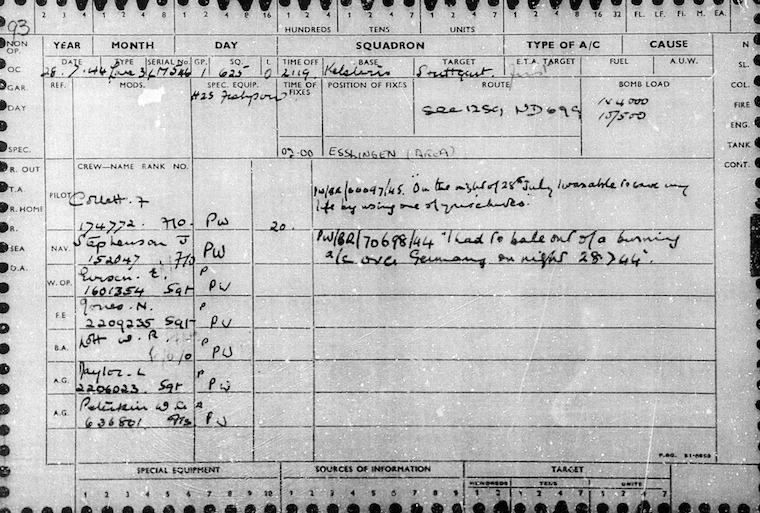 93
2 1 2 4 8 16 1 2 4 1 2 4 8 16 32 FL. LF. FI. M. EA.
HUNDREDS TENS UNITS
NON OP. YEAR MONTH DAY SQUADRON TYPE OF A/C CAUSE N
OC DATE TYPE SERIAL No. GP. SQ. L. TIME OFF BASE TARGET E.T.A. TARGET FUEL A.U.W. SL.
28.7.44 Lanc 3 LM546 1 625 0 2119 Kelstern Stuttgart
GAR. REF. MODS. SPEC. EQUIP. TIME OF FIXES POSITION OF FIXES ROUTE BOMB LOAD COL.
H2S Fishpond 1x4000
DAY See 12 Sq ND699 10/500 FIRE
ENG.
SPEC. 02.00 ESSLINGEN (AREA) TANK
R. OUT CREW—NAME RANK NO. CONT.
T.A. PILOT Collett. F PW/BR/00097/45. "On the night of 28th July I was able to save my
R. HOME life by using one of your chutes.
R. 174772. F/O. PW 20.
SEA NAV. Stephenson J PW/BR/70698/44 "I had to bale out of a burning
D.A. 152047. F/O PW a/c over Germany on night 28.7.44".
W. OP. E. P
1601354 Sgt PW
F.E Jones. N. P
2209235 Sgt PW
B.A. Lott W. R. P
F/O PW
A.G. Taylor. L P
2206023. Sgt PW
A.G. Peterkin W. P
636801. F/S PW
P.RO. 51-8859
SPECIAL EQUIPMENT SOURCES OF INFORMATION TARGET
HUNDREDS TENS UNITS
1 2 3 4 5 6 7 8 9 10 1 2 3 4 5 6 7 8 9 1 2 1 2 4 7 1 2 4 7